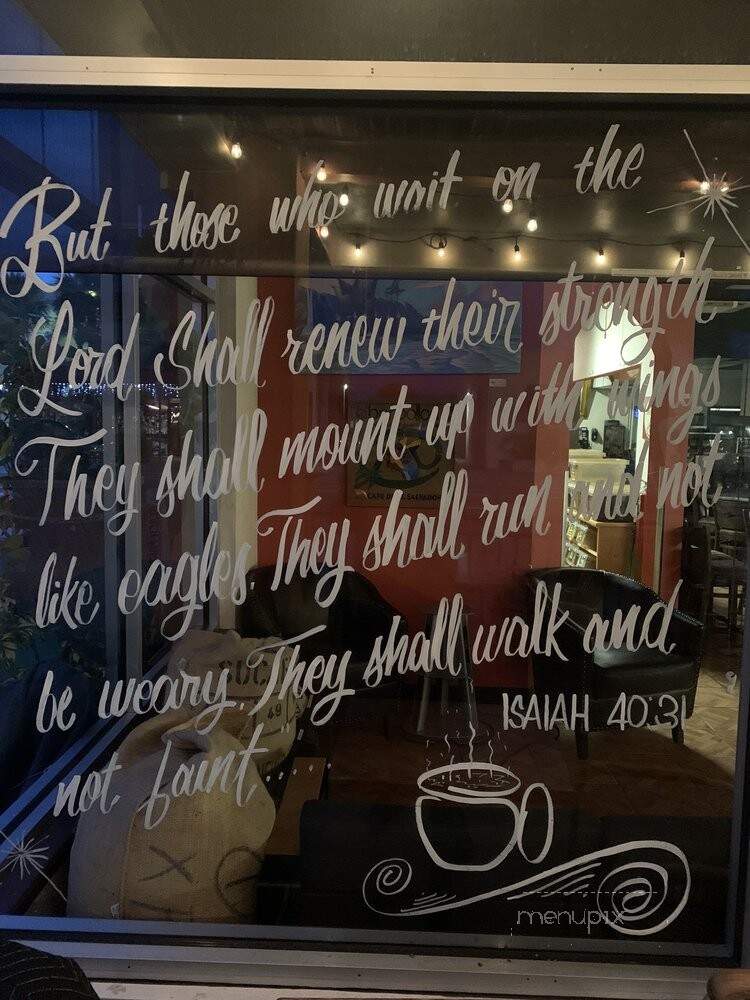 But those who wait on the
Lord Shall renew their strength
They shall mount up with wings
like eagles. They shall run and not
be weary. They shall walk and
not faint...
ISAIAH 40:31
SUC
49
menupix